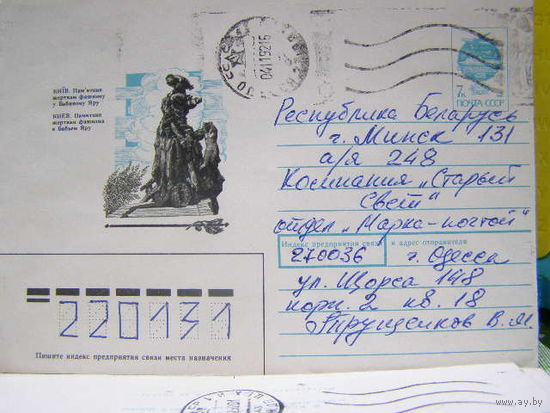 КИЇВ. Пам'ятник
жертвам фашизму
у Бабиному Яру
КИЕВ. Памятник
жертвам фашизма
в Бабьем Яру
041192 15
7к
ПОЧТА СССР
Республика Беларусь
г. Минск 131
а/я 248
Компания "Старый
Свет"
отдел "Марка-почтой"
Индекс предприятия связи и адрес отправителя
270036 г. Одесса
ул. Щорса 148
корп. 2 кв. 18
В.М.
220131
Пишите индекс предприятия связи места назначения
www.ay.by